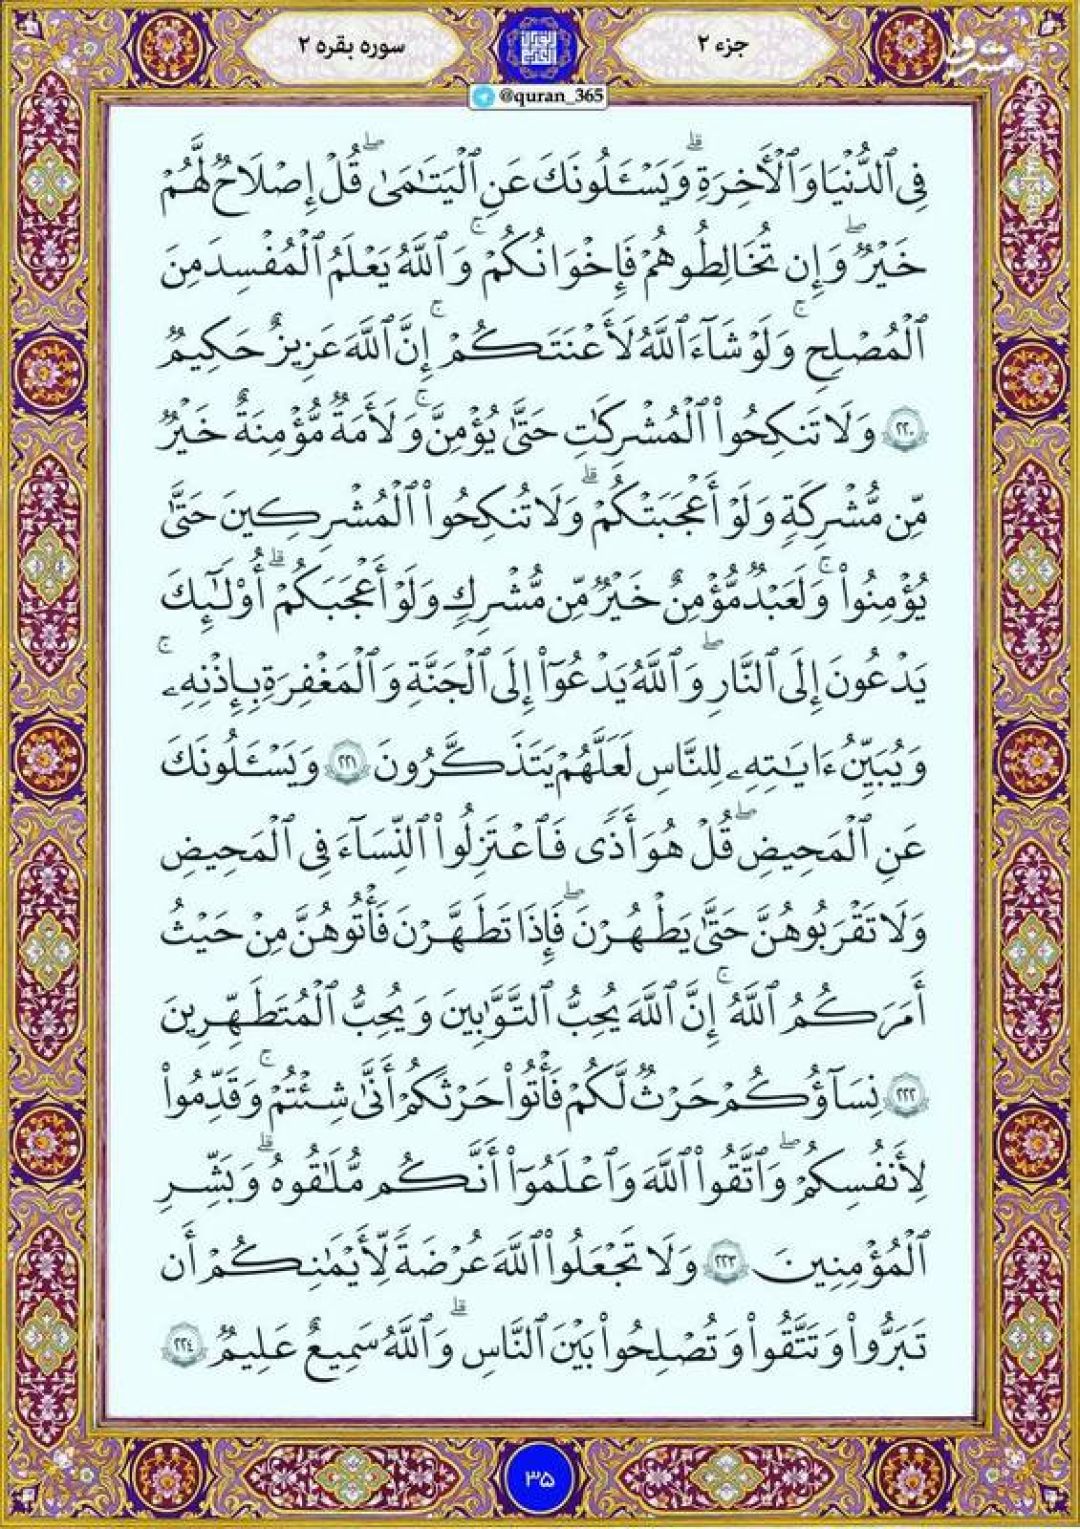 جزء ۲
سوره بقره ۲
@quran_365
فِى ٱلدُّنْيَا وَٱلْأَخِرَةِ ۗ وَيَسْـَٔلُونَكَ عَنِ ٱلْيَتَـٰمَىٰ ۖ قُلْ إِصْلَاحٌ لَّهُمْ
خَيْرٌ ۖ وَإِن تُخَالِطُوهُمْ فَإِخْوَانُكُمْ ۚ وَٱللَّهُ يَعْلَمُ ٱلْمُفْسِدَ مِنَ
ٱلْمُصْلِحِ ۚ وَلَوْ شَآءَ ٱللَّهُ لَأَعْنَتَكُمْ ۚ إِنَّ ٱللَّهَ عَزِيزٌ حَكِيمٌ
٢٢٠ وَلَا تَنكِحُوا۟ ٱلْمُشْرِكَـٰتِ حَتَّىٰ يُؤْمِنَّ ۚ وَلَأَمَةٌ مُّؤْمِنَةٌ خَيْرٌ
مِّن مُّشْرِكَةٍ وَلَوْ أَعْجَبَتْكُمْ ۗ وَلَا تُنكِحُوا۟ ٱلْمُشْرِكِينَ حَتَّىٰ
يُؤْمِنُوا۟ ۚ وَلَعَبْدٌ مُّؤْمِنٌ خَيْرٌ مِّن مُّشْرِكٍ وَلَوْ أَعْجَبَكُمْ ۗ أُو۟لَـٰٓئِكَ
يَدْعُونَ إِلَى ٱلنَّارِ ۖ وَٱللَّهُ يَدْعُوٓا۟ إِلَى ٱلْجَنَّةِ وَٱلْمَغْفِرَةِ بِإِذْنِهِۦ ۚ
وَيُبَيِّنُ ءَايَـٰتِهِۦ لِلنَّاسِ لَعَلَّهُمْ يَتَذَكَّرُونَ ٢٢١ وَيَسْـَٔلُونَكَ
عَنِ ٱلْمَحِيضِ ۖ قُلْ هُوَ أَذًى فَٱعْتَزِلُوا۟ ٱلنِّسَآءَ فِى ٱلْمَحِيضِ
وَلَا تَقْرَبُوهُنَّ حَتَّىٰ يَطْهُرْنَ ۖ فَإِذَا تَطَهَّرْنَ فَأْتُوهُنَّ مِنْ حَيْثُ
أَمَرَكُمُ ٱللَّهُ ۚ إِنَّ ٱللَّهَ يُحِبُّ ٱلتَّوَّٰبِينَ وَيُحِبُّ ٱلْمُتَطَهِّرِينَ
٢٢٢ نِسَآؤُكُمْ حَرْثٌ لَّكُمْ فَأْتُوا۟ حَرْثَكُمْ أَنَّىٰ شِئْتُمْ ۚ وَقَدِّمُوا۟
لِأَنفُسِكُمْ ۖ وَٱتَّقُوا۟ ٱللَّهَ وَٱعْلَمُوٓا۟ أَنَّكُم مُّلَـٰقُوهُ ۗ وَبَشِّرِ
ٱلْمُؤْمِنِينَ ٢٢٣ وَلَا تَجْعَلُوا۟ ٱللَّهَ عُرْضَةً لِّأَيْمَـٰنِكُمْ أَن
تَبَرُّوا۟ وَتَتَّقُوا۟ وَتُصْلِحُوا۟ بَيْنَ ٱلنَّاسِ ۗ وَٱللَّهُ سَمِيعٌ عَلِيمٌ ٢٢٤
۳۵